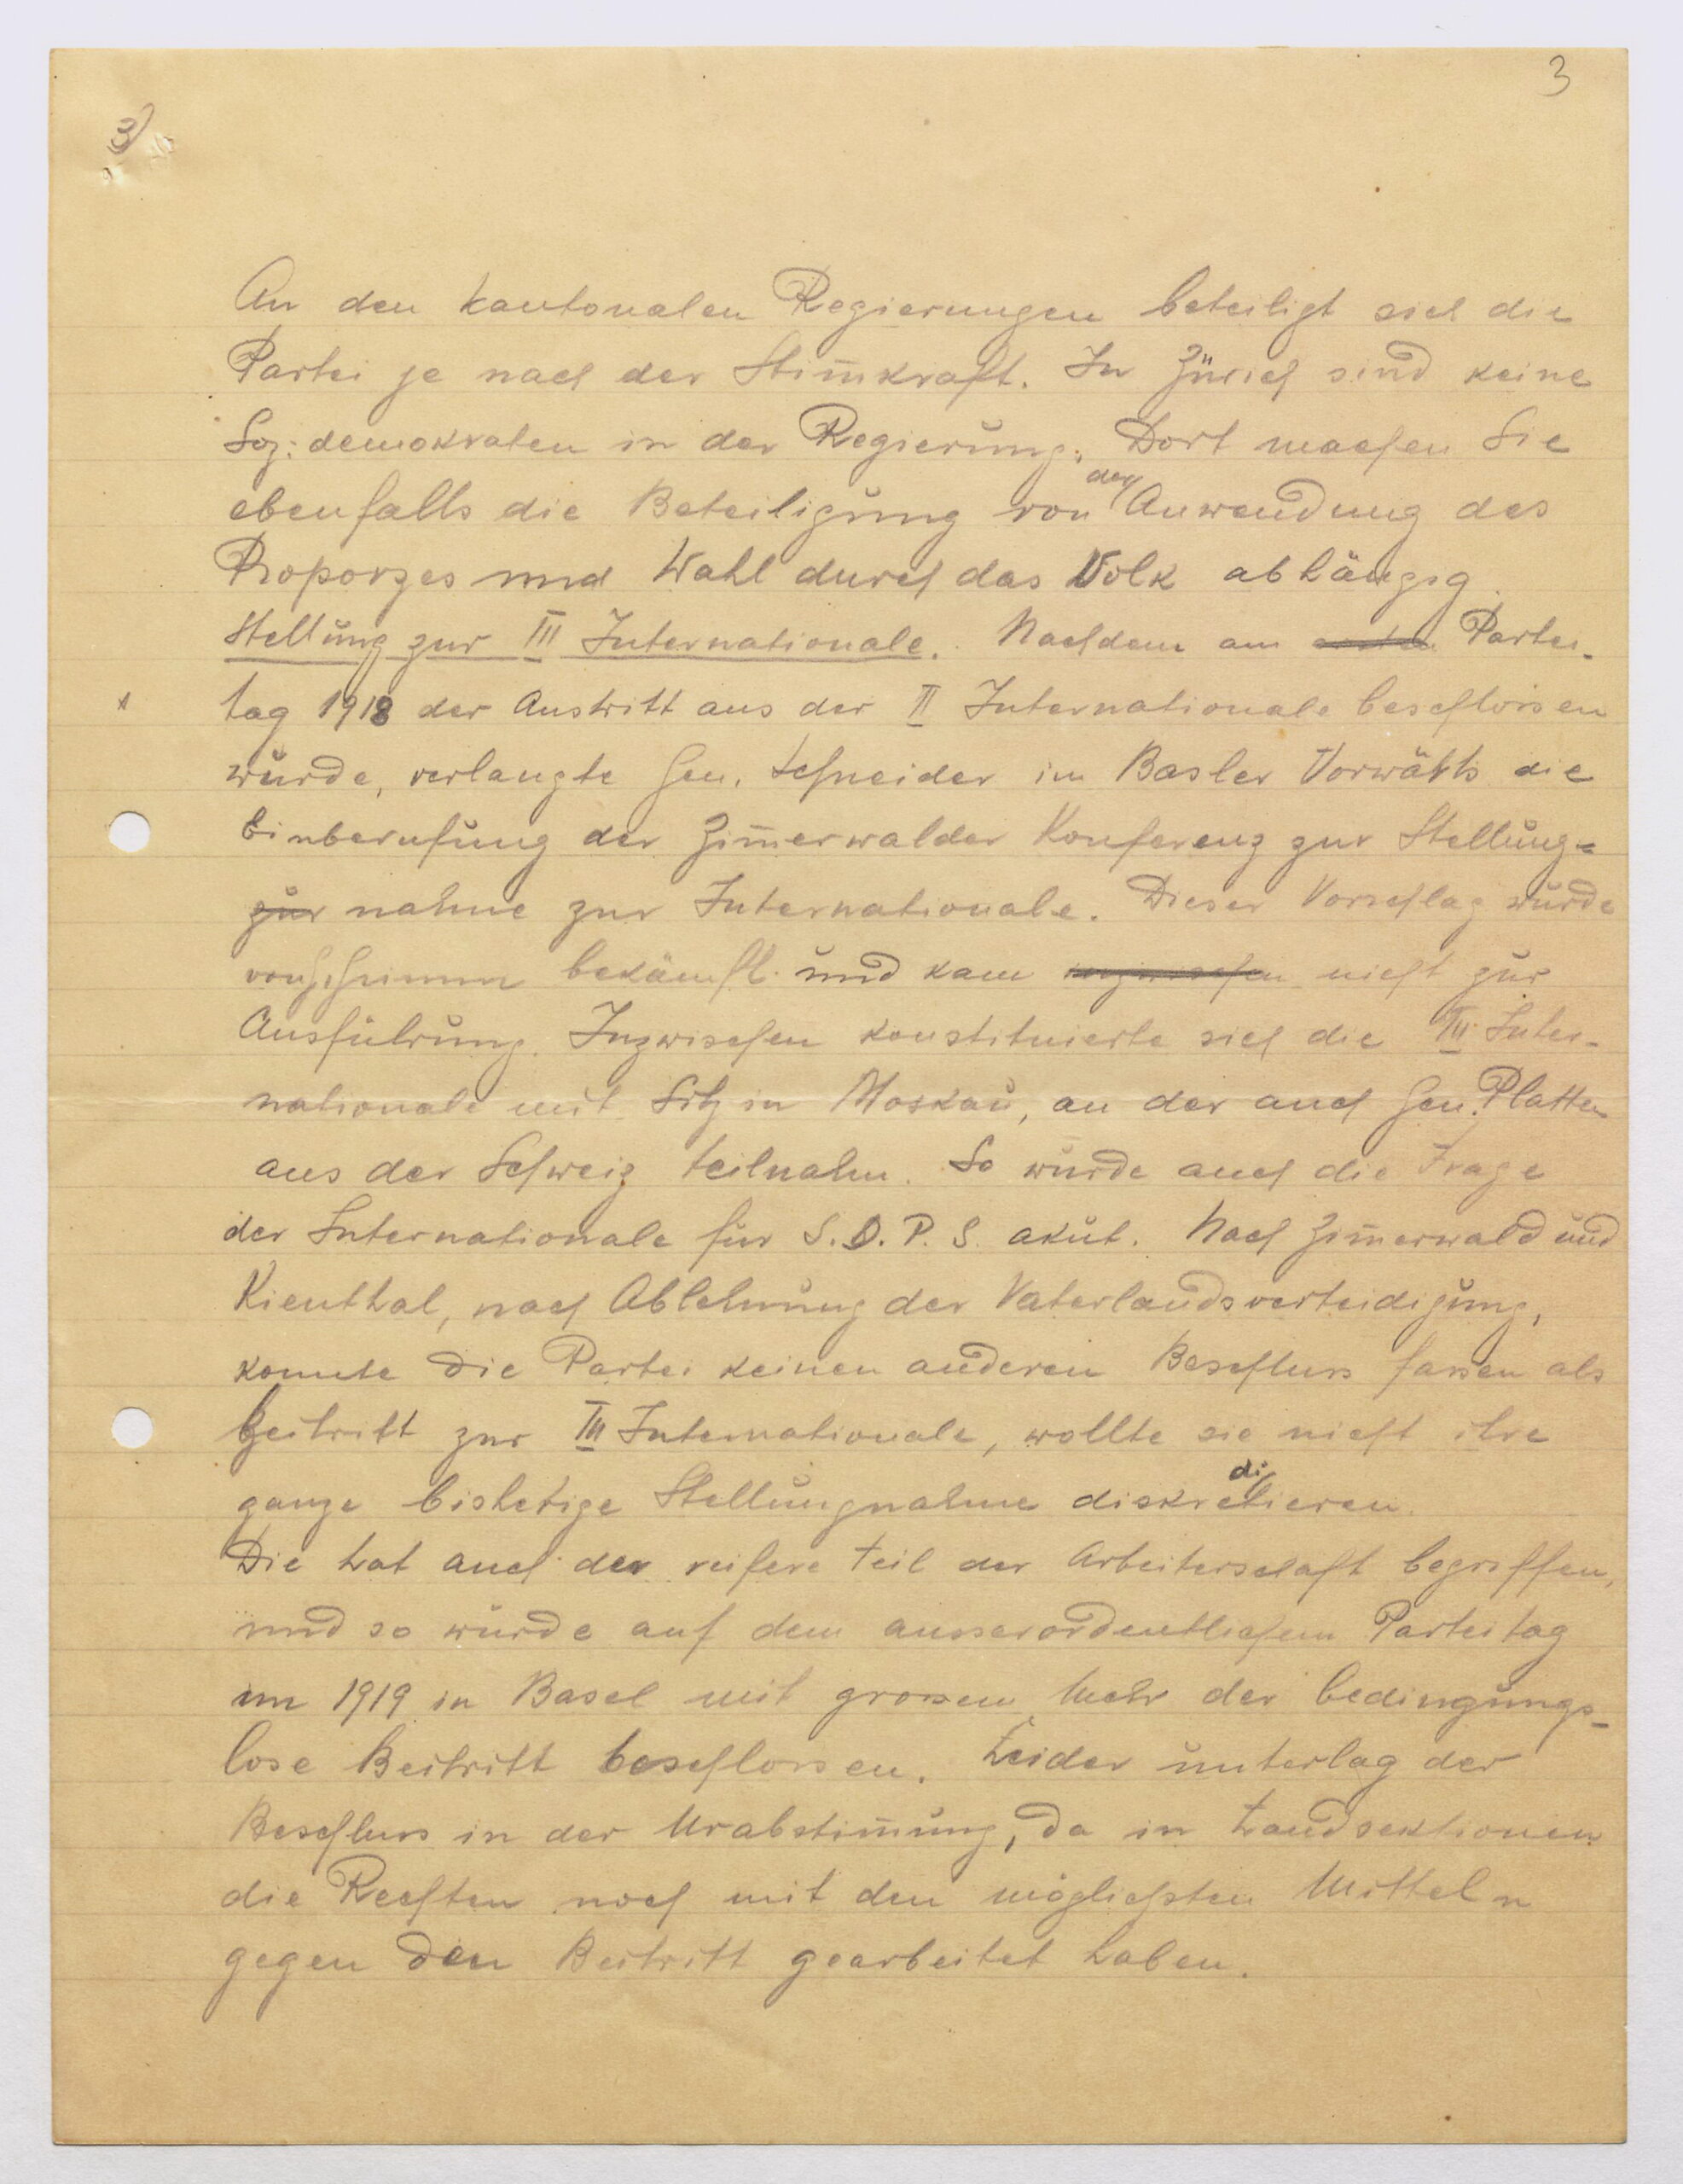 3
3)
An den kantonalen Regierungen beteiligt sich die
Partei je nach der Stim̄kraft. In Zürich sind keine
Soz: demokraten in der Regierung. Dort machen Sie
ebenfalls die Beteiligung von der Anwendung des
Proporzes und Wahl durch das Volk abhängig.
Stellung zur III Internationale. Nachdem am Partei-
tag 1918 der Austritt aus der II Internationale beschlossen
wurde, verlangte Gen. Schneider im Basler Vorwärts die
Einberufung der Zim̄erwalder Konferenz zur Stellung-
zur nahme zur Internationale. Dieser Vorschlag wurde
bekämpft und kam inzwischen nicht zur
Ausführung. Inzwischen konstituierte sich die III Inter-
nationale mit Sitz in Moskau, an der auch Gen. Platten
aus der Schweiz teilnahm. So wurde auch die Frage
der Internationale für S.D.P.S. akut. Nach Zim̄erwald und
Kienthal, nach Ablehnung der Vaterlandsverteidigung,
konnte die Partei keinen anderen Beschluss fassen als
Beitritt zur III Internationale, wollte sie nicht ihre
ganze bisherige Stellungnahme diskreditieren.
Die hat auch der reifere Teil der Arbeiterschaft begriffen,
und so wurde auf dem ausserordentlichem Parteitag
im 1919 in Basel mit grossem Mehr der bedingungs-
lose Beitritt beschlossen. Leider unterlag der
Beschluss in der Urabstim̄ung, da in Landsektionen
die Rechten noch mit den möglichsten Mitteln
gegen den Beitritt gearbeitet haben.